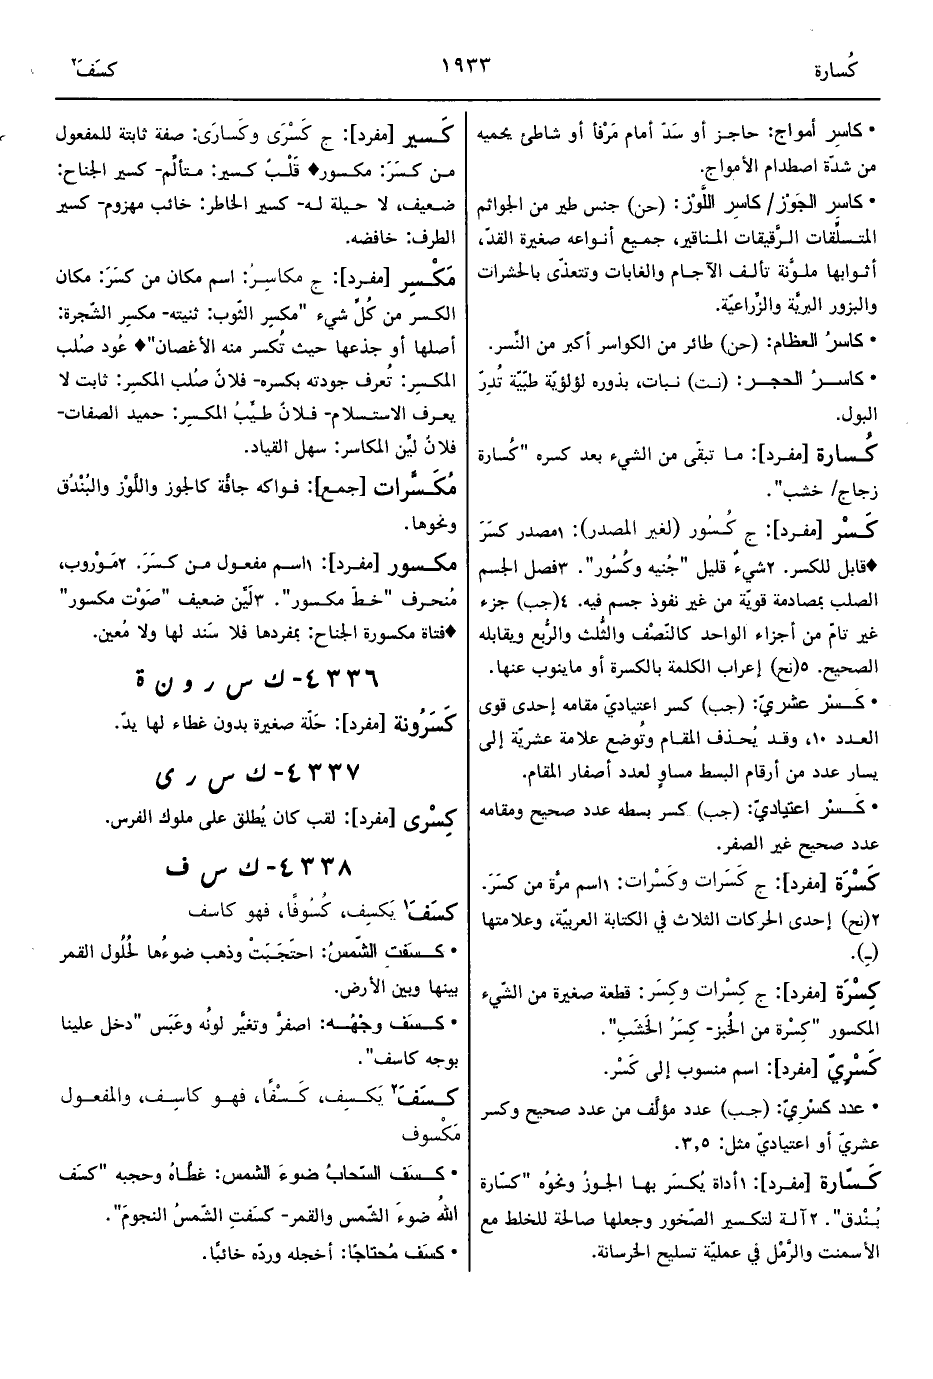 كُسارة
١٩٣٣
كسَفَ٢
• كاسِر أمواج: حاجز أو سَدّ أمام مَرْفأ أو شاطئ يحميه
من شدّة اصطدام الأمواج.
• كاسِر الجَوْز/ كاسِر اللَّوْز: (حن) جنس طير من الجواثم
المتسلِّقات الرَّقيقات المناقير، جميع أنواعه صغيرة القدّ،
أثوابها ملوَّنة تألف الآجام والغابات وتتغذّى بالحشرات
والبزور البريَّة والزِّراعيّة.
• كاسرُ العظام: (حن) طائر من الكواسر أكبر من النَّسر.
• كاسـرُ الحجـر: (نـت) نـبات، بذوره لؤلؤيّة طبّيّة تُدِرّ
البول.
كُسارة [مفرد]: مـا تبقّى من الشّيء بعد كسره "كُسارة
زجاج/ خشب".
كَسْر [مفرد]: ج كُسُور (لغير المصدر): ١مصدر كسَرَ
♦قابل للكسر. ٢شيءٌ قليل "جُنيه وكُسُور". ٣فصل الجسم
الصلب بمصادمة قويّة من غير نفوذ جسم فيه. ٤(جب) جزء
غير تامّ من أجزاء الواحد كالنّصْف والثُّلث والرُّبع ويقابله
الصحيح. ٥(نح) إعراب الكلمة بالكسرة أو ماينوب عنها.
• كَـسْر عشريّ: (جب) كسر اعتياديّ مقامه إحدى قوى
العدد ١٠، وقـد يُحـذف المقـام وتُوضع علامة عشريّة إلى
يسار عدد من أرقام البسط مساوٍ لعدد أصفار المقام.
• كَـسْر اعتياديّ: (جب) كسر بسطه عدد صحيح ومقامه
عدد صحيح غير الصفر.
كَسْرَة [مفرد]: ج كَسَرات وكَسْرات: ١اسم مرَّة من كسَرَ.
٢(نح) إحدى الحركات الثلاث في الكتابة العربيّة، وعلامتها
(ـِ).
كِسْرَة [مفرد]: ج كِسْرات وكِسَر: قطعة صغيرة من الشّيء
المكسور "كِسْرة من الخُبز- كِسَرُ الخَشَبِ".
كَسْريّ [مفرد]: اسم منسوب إلى كَسْر.
• عدد كَسْريّ: (جـب) عدد مؤلَّف من عدد صحيح وكسر
عشريّ أو اعتياديّ مثل: ٣,٥.
كَـسَّارة [مفـرد]: ١أداة يُكسَر بهـا الجـوز ونحوُه "كسّارة
بُـنْدق". ٢آلـة لتكـسير الصّخور وجعلها صالحة للخلط مع
الأسمنت والرَّمْل في عمليّة تسليح الخرسانة.
كَسير [مفرد]: ج كَسْرَى وكَسارَى: صفة ثابتة للمفعول
مـن كسَرَ: مكـسور♦ قَلْـبٌ كسير: مـتألِّم- كسير الجناح:
ضعـيف، لا حـيلة لـه- كسير الخاطر: خائب مهزوم- كسير
الطرف: خافضه.
مَكْسِر [مفرد]: ج مكاسِـرُ: اسم مكان من كسَرَ: مكان
الكسر من كُلِّ شيء "مكسِر الثّوب: ثنيته- مكسِر الشّجرة:
أصلها أو جذعها حيث تُكسر منه الأغصان"♦ عُود صُلب
المكسِـر: تُعرف جودته بكسره- فلانٌ صُلب المكسِر: ثابت لا
يعـرف الاستـسلام- فـلانٌ طـيِّبُ المكسِر: حميد الصفات-
فلانٌ ليِّن المكاسر: سهل القياد.
مُكَـسَّرات [جمع]: فـواكه جافّة كالجوز واللّوْز والبُنْدُق
ونحوها.
مكـسور [مفـرد]: ١اسـم مفعول من كـسَرَ. ٢مَـوْروب،
مُنحرف "خطّ مكـسور". ٣ليّن ضعيف "صَوْت مكسور"
♦فتاة مكسورة الجناح: بمفردها فلا سَند لها ولا مُعين.
٤٣٣٦- ك س ر و ن ة
كَسَرُونة [مفرد]: حَلّة صغيرة بدون غطاء لها يدّ.
٤٣٣٧- ك س ر ى
كِسْرى [مفرد]: لقب كان يُطلق على ملوك الفرس.
٤٣٣٨- ك س ف
كسَفَ١ يَكسِف، كُسُوفًا، فهو كاسف
• كـسَفَتِ الشّمسُ: احتَجَبَتْ وذهب ضوءُها لحُلُول القمر
بينها وبين الأرض.
• كـسَف وجْهُـه: اصفرَّ وتغيَّر لونُه وعَبَس "دخل علينا
بوجه كاسف".
كـسَفَ٢ يَكـسِف، كَـسْفًا، فهـو كاسِـف، والمفعـول
مَكْسوف
• كـسَف السّحابُ ضوءَ الشمس: غطّاهُ وحجبه "كسَف
اللهُ ضوءَ الشّمس والقمر- كسَفتِ الشّمسُ النجومَ".
• كسَف مُحتاجًا: أخجله وردّه خائبًا.